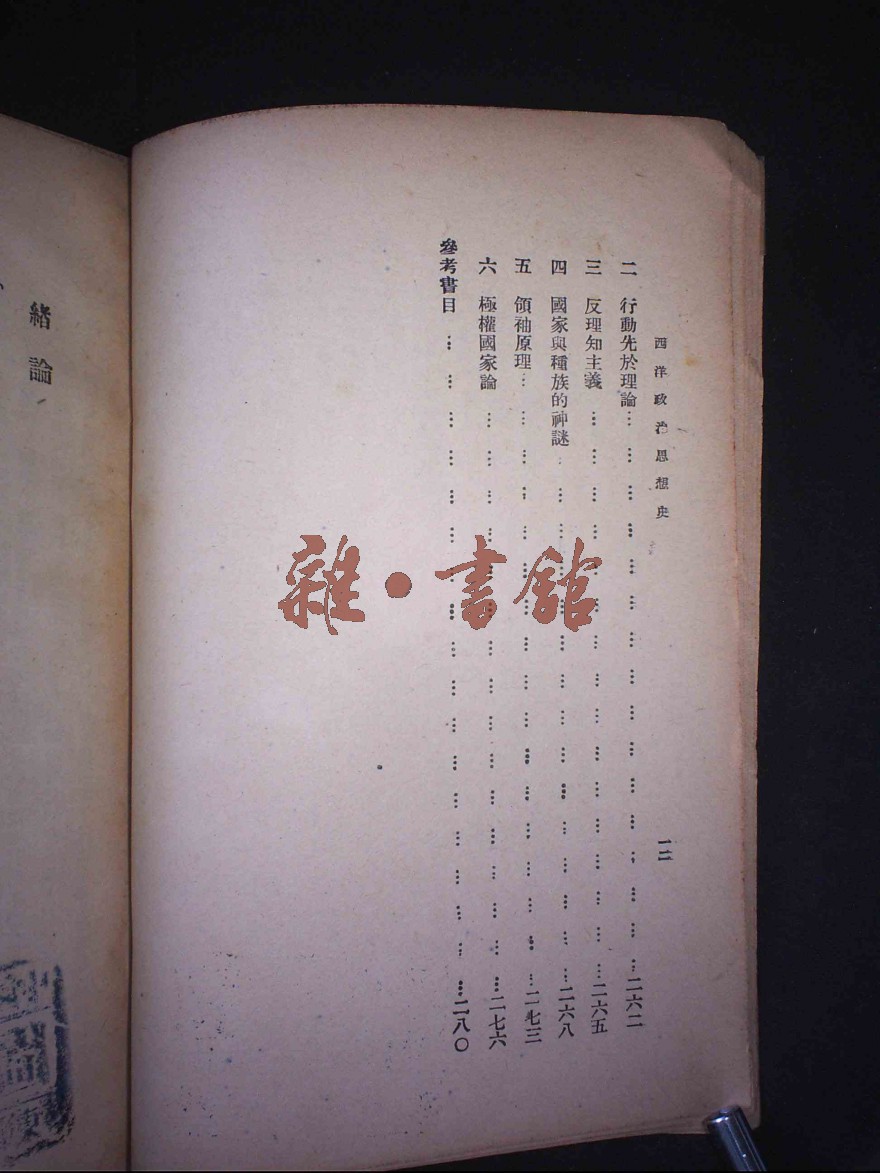 西洋政治思想史
一二
二 行動先於理論………………………………二六二
三 反理知主義………………………………二六五
四 國家與種族的神謎………………………………二六八
五 領袖原理………………………………二七三
六 極權國家論………………………………二七六
參考書目………………………………二八〇
緒論
雜·書館